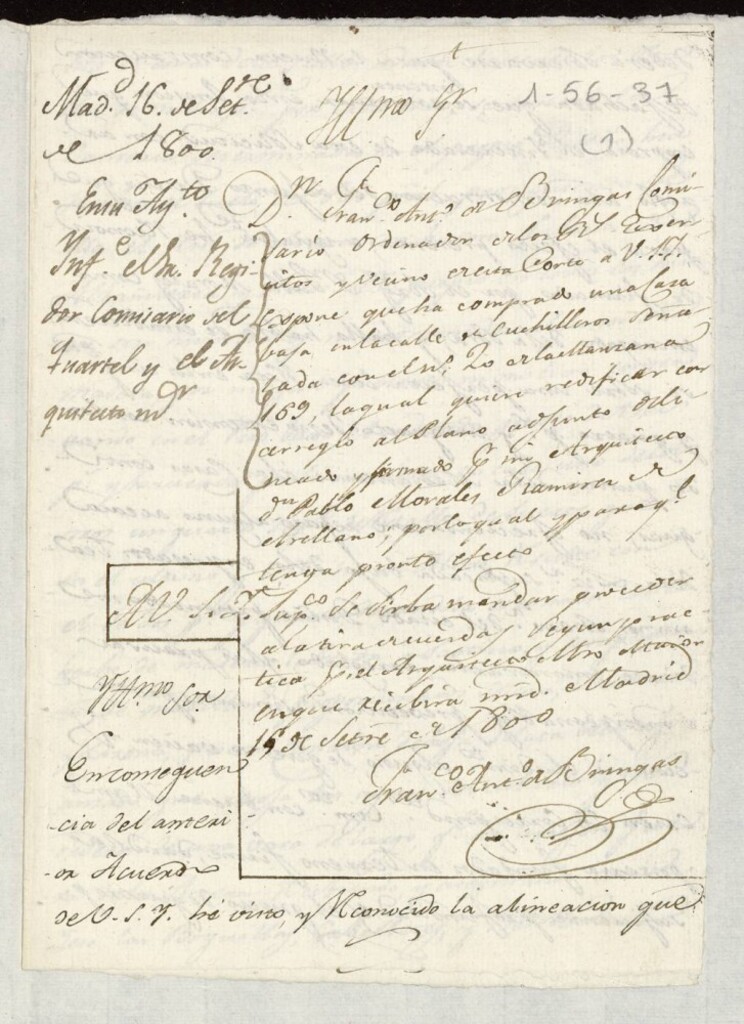 1-56-37
(1)
Yllmo Sr
Mad.d 16. de Set.re
de 1800.
En su Ay.to
Ynf.e el Sr. Regi-
dor Comisario del
Quartel y el Ar-
quitecto mr
Dn. Fran.co Ant.o de Bringas Comi-
sario ordenador de los Exer-
citos y vecino de esta Corte a V.S.Y.
expone que ha comprado una Casa
baxa en la calle de Cuchilleros seña-
lada con el n.o 20 de la Manzana
169, la qual quiere redificar con
arreglo al Plano adjunto deli-
neado y firmado p.r mi Arquitecto
dn Pablo Morales Ramirez de
Arellano; por lo qual y para q.e
tenga pronto efecto
A V.S.Y. Sup.co se sirba mandar proceder
a la tira de cuerdas segun prac-
tica p.r el Arquitecto Mro Maior
en que recibira mrd. Madrid
15 de Setre de 1800
Fran.co Ant.o de Bringas
Yllmo Sor
En conseguen
-cia del anteri
-or Acuerdo
de V.S.Y. he visto, y Reconocido la alineacion que